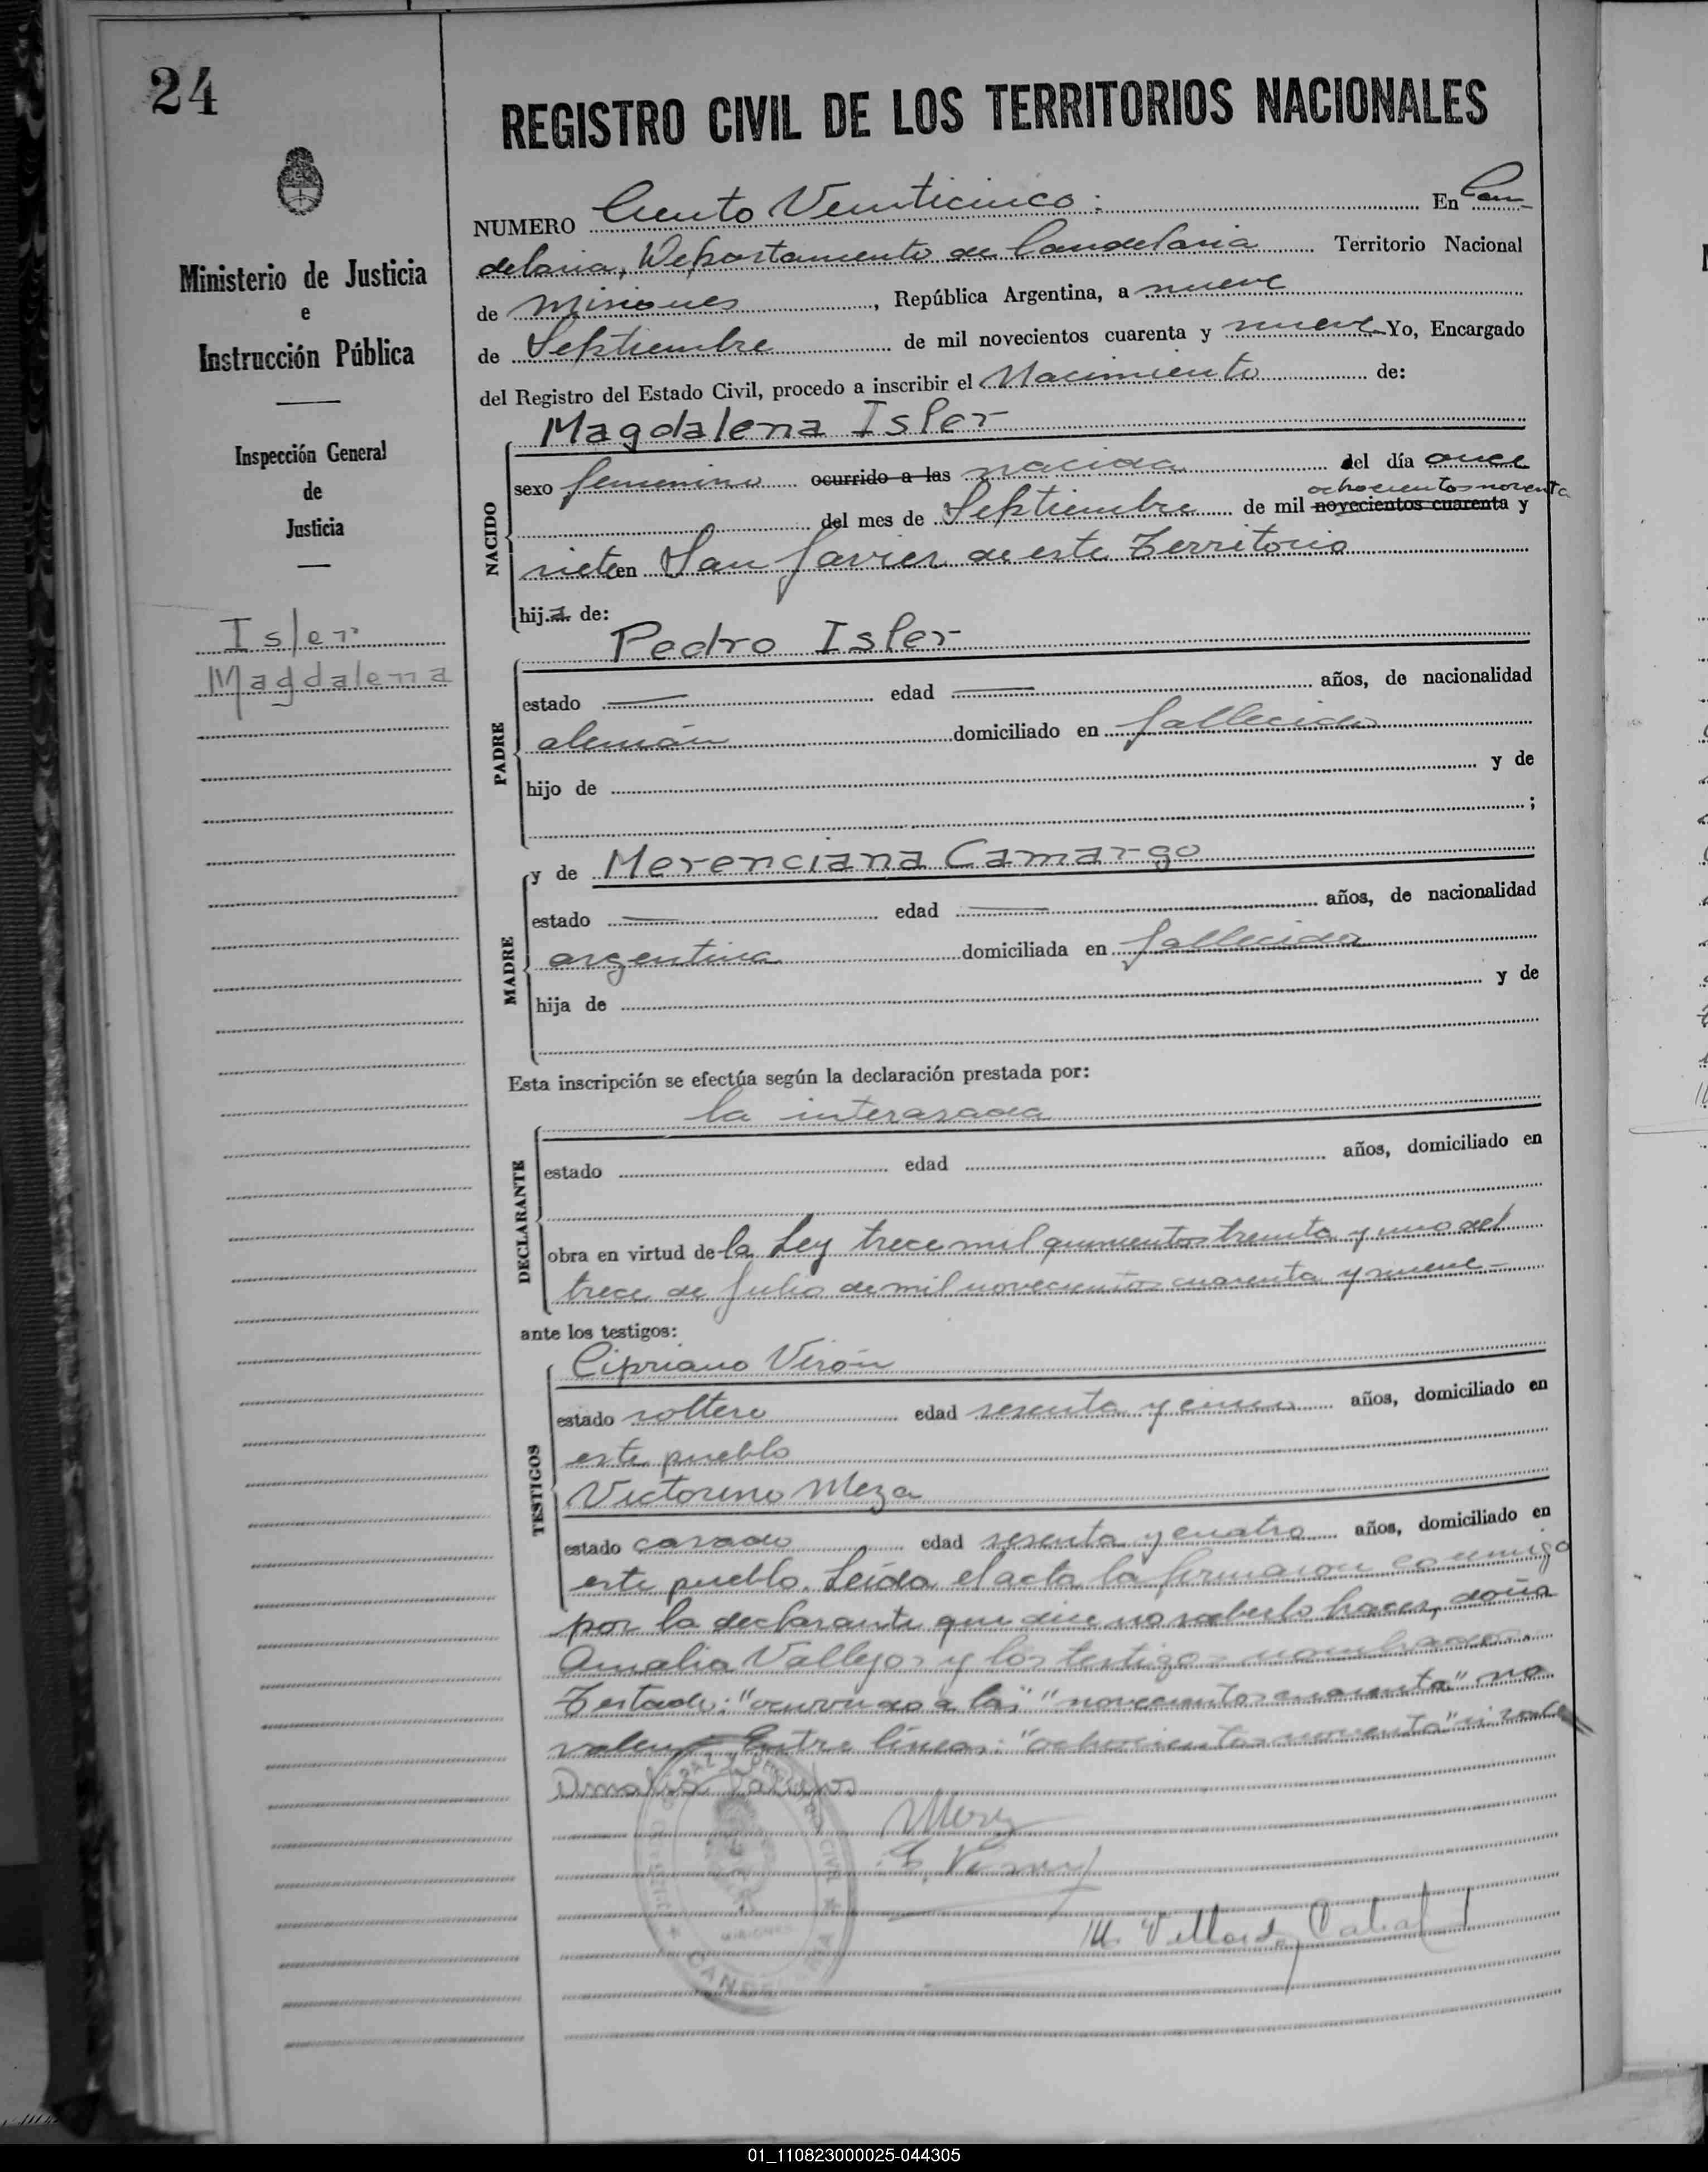 24
REGISTRO CIVIL DE LOS TERRITORIOS NACIONALES
Ministerio de Justicia
e
Instrucción Pública
Inspección General
de
Justicia
Isler
Magdalena
NUMERO Ciento Veinticinco: En Can-
delaria, Departamento de Candelaria Territorio Nacional
de Misiones, República Argentina, a nueve
de Septiembre de mil novecientos cuarenta y nueve Yo, Encargado
del Registro del Estado Civil, procedo a inscribir el Nacimiento de:
NACIDO
Magdalena Isler
sexo femenino ocurrido a las nacida del día once
ochocientos noventa
del mes de Septiembre de mil novecientos cuarenta y
siete en San Javier de este Territorio
hija de:
PADRE
Pedro Isler
estado — edad — años, de nacionalidad
alemán domiciliado en fallecido
hijo de y de
;
MADRE
y de Merenciana Camargo
estado — edad — años, de nacionalidad
argentina domiciliada en fallecida
hija de y de
Esta inscripción se efectúa según la declaración prestada por:
DECLARANTE
la interasada
estado edad años, domiciliado en
obra en virtud de la Ley trece mil quinientos treinta y uno del
trece de Julio de mil novecientos cuarenta y nueve -
ante los testigos:
TESTIGOS
Cipriano Verón
estado soltero edad sesenta y cinco años, domiciliado en
este pueblo
Victorino Meza
estado casado edad sesenta y cuatro años, domiciliado en
este pueblo. Leída el acta la firmaron conmigo
por la declarante que dice no saberlo hacer, doña
Amalia Vallejos y los testigos nombrados.
Testado: "ocurrido a las" "novecientos cuarenta" no
valen. Entre líneas: "ochocientos noventa" si vale
Amalia Vallejos
CANDELARIA
MISIONES
01_110823000025-044305